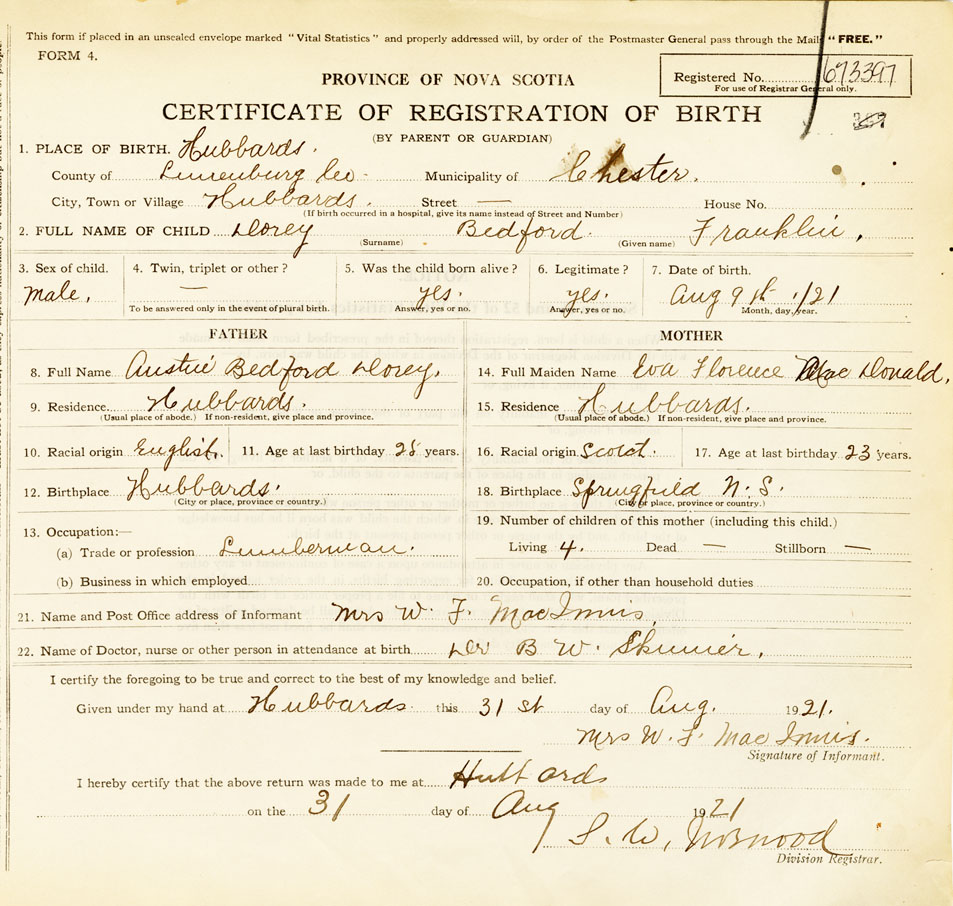 This form if placed in an unsealed envelope marked "Vital Statistics" and properly addressed will, by order of the Postmaster General pass through the Mail "FREE."
FORM 4.
PROVINCE OF NOVA SCOTIA
Registered No. 673397
For use of Registrar General only.
CERTIFICATE OF REGISTRATION OF BIRTH
(BY PARENT OR GUARDIAN)
1. PLACE OF BIRTH. Hubbards.
County of Lunenburg Co. Municipality of Chester.
City, Town or Village Hubbards. Street — House No.
(If birth occurred in a hospital, give its name instead of Street and Number)
2. FULL NAME OF CHILD Dorey Bedford Franklin.
(Surname) (Given name)
3. Sex of child. 4. Twin, triplet or other? 5. Was the child born alive? 6. Legitimate? 7. Date of birth.
Male. — yes. yes. Aug 9th /21
To be answered only in the event of plural birth. Answer, yes or no. Answer, yes or no. Month, day, year.
FATHER MOTHER
8. Full Name Austin Bedford Dorey. 14. Full Maiden Name Eva Florence MacDonald.
9. Residence Hubbards. 15. Residence Hubbards.
(Usual place of abode.) If non-resident, give place and province. (Usual place of abode.) If non-resident, give place and province.
10. Racial origin English. 11. Age at last birthday 28 years. 16. Racial origin Scotch. 17. Age at last birthday 23 years.
12. Birthplace Hubbards. 18. Birthplace Springfield N.S.
(City or place, province or country.) (City or place, province or country.)
13. Occupation:— 19. Number of children of this mother (including this child.)
(a) Trade or profession Lumberman. Living 4. Dead — Stillborn —
(b) Business in which employed 20. Occupation, if other than household duties
21. Name and Post Office address of Informant Mrs W. F. MacInnis.
22. Name of Doctor, nurse or other person in attendance at birth Dr B. W. Skinner.
I certify the foregoing to be true and correct to the best of my knowledge and belief.
Given under my hand at Hubbards this 31st day of Aug. 1921.
Mrs W. F. MacInnis.
Signature of Informant.
I hereby certify that the above return was made to me at Hubbards
on the 31 day of Aug 1921
S. W. Norwood
Division Registrar.